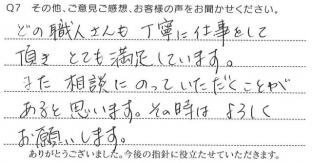 Q7 その他、ご意見ご感想、お客様の声をお聞かせください。
どの職人さんも丁寧に仕事をして
頂きとても満足しています。
また相談にのっていただくことが
あると思います。その時はよろしく
お願いします。
ありがとうございました。今後の指針に役立たせていただきます。